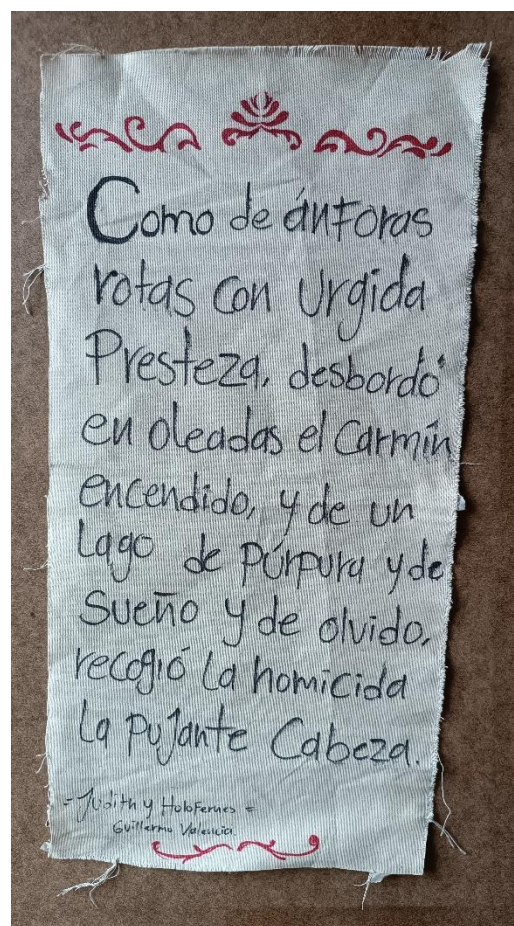 Como de ánforas
rotas con Urgida
Presteza, desbordó
en oleadas el Carmín
encendido, y de un
Lago de púrpura y de
Sueño y de olvido,
recogió la homicida
La pujante Cabeza.
= Judith y Holofernes =
Guillermo Valencia.